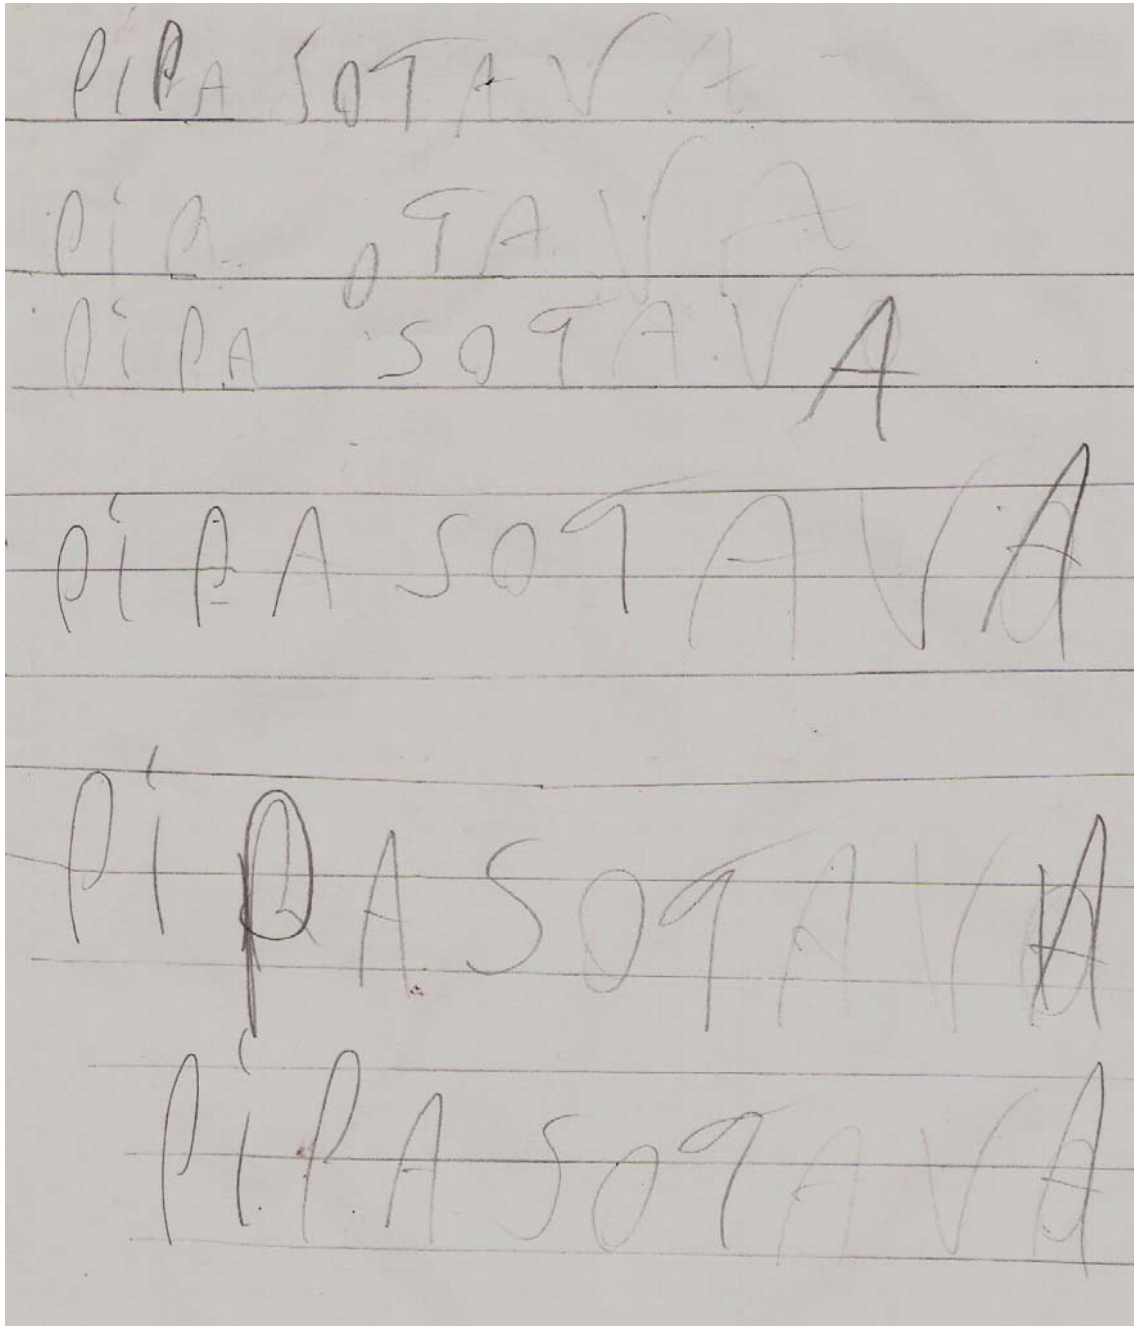 PiPA SOTAVA
PiP OTAVA
PiPA SOTAVA
PiPA SOTAVA
PiPA SOTAVA
PiPA SOTAVA